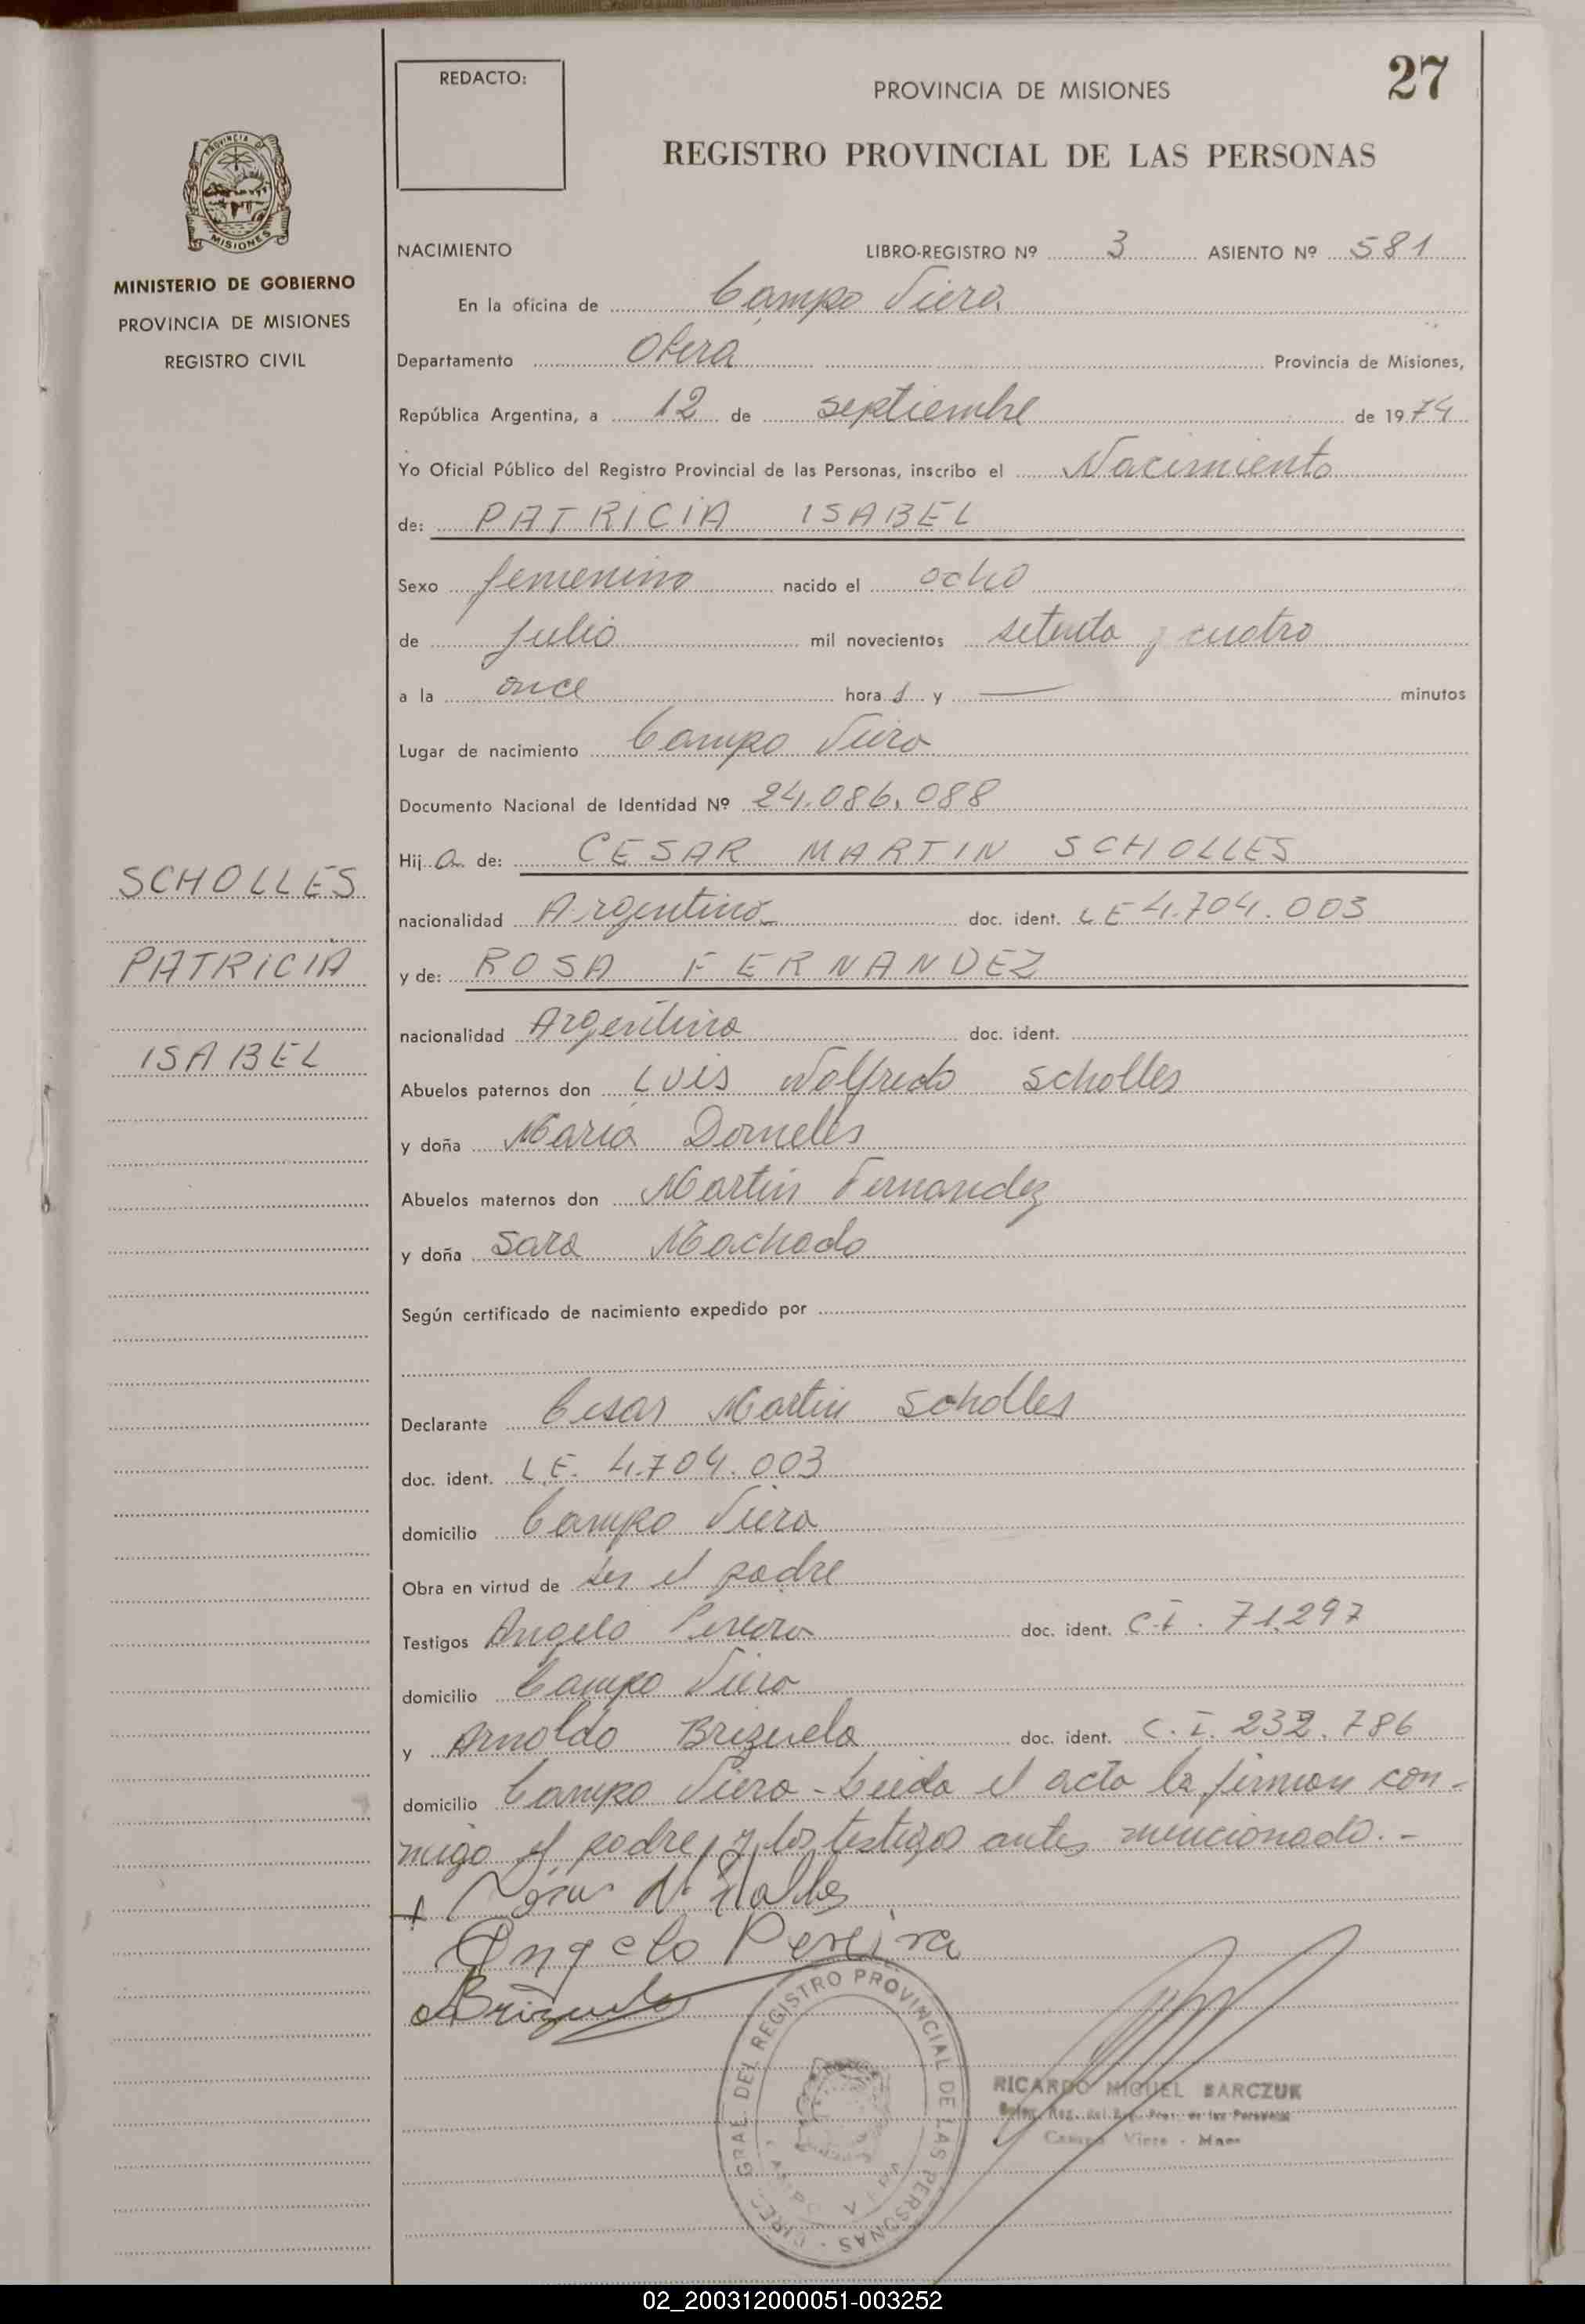 REDACTO:
PROVINCIA DE MISIONES
27
REGISTRO PROVINCIAL DE LAS PERSONAS
PROVINCIA DE
MISIONES
MINISTERIO DE GOBIERNO
PROVINCIA DE MISIONES
REGISTRO CIVIL
NACIMIENTO LIBRO-REGISTRO Nº 3 ASIENTO Nº 581
En la oficina de Campo Viera
Departamento Oberá Provincia de Misiones,
República Argentina, a 12 de septiembre de 1974
Yo Oficial Público del Registro Provincial de las Personas, inscribo el Nacimiento
de: PATRICIA ISABEL
Sexo femenino nacido el ocho
de Julio mil novecientos setenta y cuatro
a la once hora s y — minutos
Lugar de nacimiento Campo Viera
Documento Nacional de Identidad Nº 24.086.088
Hij a de: CESAR MARTIN SCHOLLES
SCHOLLES
nacionalidad Argentina doc. ident. LE 4.704.003
PATRICIA
y de: ROSA FERNANDEZ
nacionalidad Argentina doc. ident.
ISABEL
Abuelos paternos don Luis Wolfredo Scholles
y doña Maria Dorneles
Abuelos maternos don Martin Fernandez
y doña Sara Machado
Según certificado de nacimiento expedido por
Declarante Cesar Martin Scholles
doc. ident. L.E. 4.704.003
domicilio Campo Viera
Obra en virtud de ser el padre
Testigos Angelo Pereira doc. ident. C.I. 71.297
domicilio Campo Viera
y Arnoldo Brizuela doc. ident. C.I. 232.786
domicilio Campo Viera - Leida el acta la firman con-
migo el padre y los testigos antes mencionado. -
Angelo Pereira
Brizuela
DIREC. GRAL. DEL REGISTRO PROVINCIAL DE LAS PERSONAS
RICARDO MIGUEL BARCZUK
Campo Viera - Mnes
02_200312000051-003252